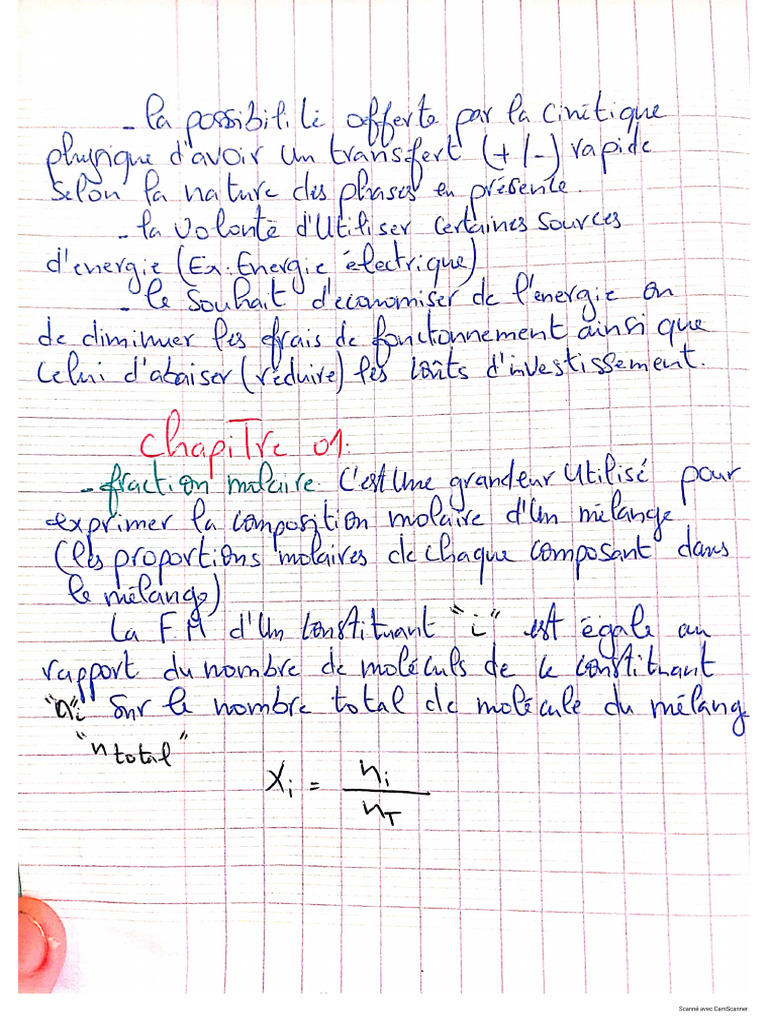 - la possibilité offerte par la cinétique
physique d'avoir un transfert (+/-) rapide
selon la nature des phases en présente.
- la volonté d'utiliser certaines sources
d'energie (Ex: Energie électrique)
- le souhait d'économiser de l'energie ou
de diminuer les frais de fonctionnement ainsi que
celui d'abaiser (réduire) les coûts d'investissement.
Chapitre 01:
- fraction molaire. C'est Une grandeur Utilisé pour
exprimer la composition molaire d'Un mélange
(les proportions molaires de chaque composant dans
le mélange)
La F M d'Un constituant "i" est égale au
rapport du nombre de moléculs de ce constituant
"ni" sur le nombre total de molécule du mélang
"n total"
Xi = ni / nT
Scanné avec CamScanner